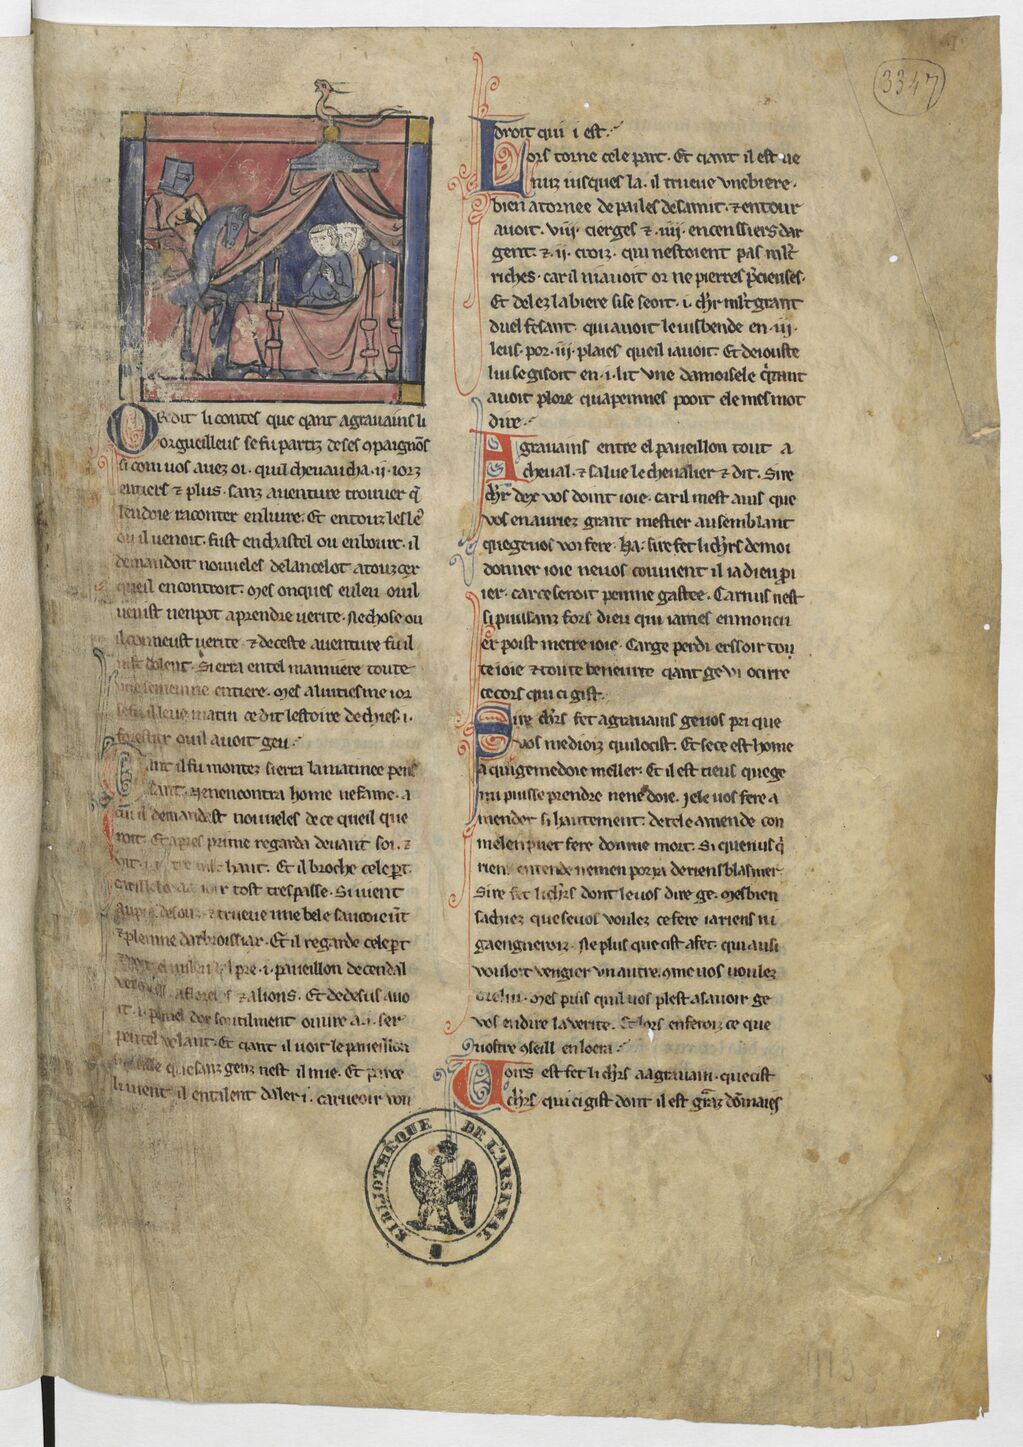 3347
Or dit li contes que qant agravains li
orgueilleus se fu partiz de ses 9paignõs
si com vos avez oi. qui chevaucha .ii. iorz
entiers ⁊ plus. sanz aventure trouver q̃
len doie raconter en livre. Et en touz les leˢ
ou il venoit. fust en chastel ou en bourc. il
demandoit nouveles de lancelot a touz cex
queil encontroit. Mes onques en leu ou il
venist nen pot aprendre verite. Ne chose ou
il conneust verite ⁊ de ceste aventure fu il
dolent. Si erra en tel manniere toute
semenne entiere. Mes al uitiesme ior
matin ce dit lestoire de chies .i.
forestier ou il avoit geu.
Qant il fu montez si erra la matinee pen
sant. Ne nencontra home ne fame. a
cui il demandast nouveles de ce queil que
roit. Et apres prime regarda devant soi. ⁊
haut. Et il broche cele p̃t.
tost trespasse. Si vient
⁊ trueve une bele
⁊ plenne darbroissiax. Et il regarde cele p̃t
pre .i. paveillon de cendal
⁊ a lions. Et de desus avo
it .i. dor soutilment ovvre a .i. ser
pentel volant. Et qant il voit le paveillon
que sanz genz nest il mie. Et por ce
li vient il en talent daler i. car veoir von
droit qui i est.
Lors torne cele part. Et qant il est ve
nuz iusques la. il trueve une biere.
bien atornee de pailes de samit. ⁊ entour
avoit .viii. cierges ⁊ .iiii. encenssiers dar
gent. ⁊ .ii. croiz. qui nestoient pas ml̃t
riches. car il ni avoit or ne pierres p̃cienses.
Et delez la biere si se seoit .i. ch̃r ml̃t grant
duel fesant. qui avoit le vis bende en .iii.
leus. por .iii. plaies queil i avoit. Et deiouste
lui se gisoit en .i. lit une damoisele q̃ tant
avoit plore qua pennes pooit ele mes mot
dire.
Agravains entre el paveillon tout a
cheval. ⁊ salue le chevalier ⁊ dit. Sire
ch̃r dex vos doint ioie. car il mest avis que
vos en auriez grant mestier au semblant
que ge vos voi fere. Ha. sire fet li ch̃rs de moi
donner ioie ne vos couvient il ia dieu p̃i
ier. car ce seroit penne gastee. Car nus nest
si puissanz fors dieu qui iames en mon cu
er poist metre ioie. Car ge perdi erssoir tou
te ioie ⁊ toute beneurte qant ge vi ocirre
ce cors qui ci gist.
Sire ch̃rs fet agravains ge vos pri que
vos me dioiz qui locist. Et se ce est home
a qui ge me doie meller. Et il est tieus que ge
mi puisse prendre ne ne doie. Je le vos fere a
mender si hautement. de tele amende con
me len puet fere donme mort. Si que nus q̃
rien entende ne men porra de riens blasmer.
Sire fet li ch̃rs dont le vos dire ge. Mes bien
sachiez que se vos voulez ce fere ia riens ni
gaengneroiz. Ne plus que cist a fet. qui ausi
vouloit vengier un autre. 9me vos voulez
celui. Mes puis quil vos plest a savoir ge
vos en dire la verite. Et lors en feroiz ce que
vostre 9seill en loera.
Voirs est fet li ch̃rs a agravain. que cist
ch̃rs qui ci gist dont il est granz domages
BIBLIOTHÈQUE DE L'ARSENAL